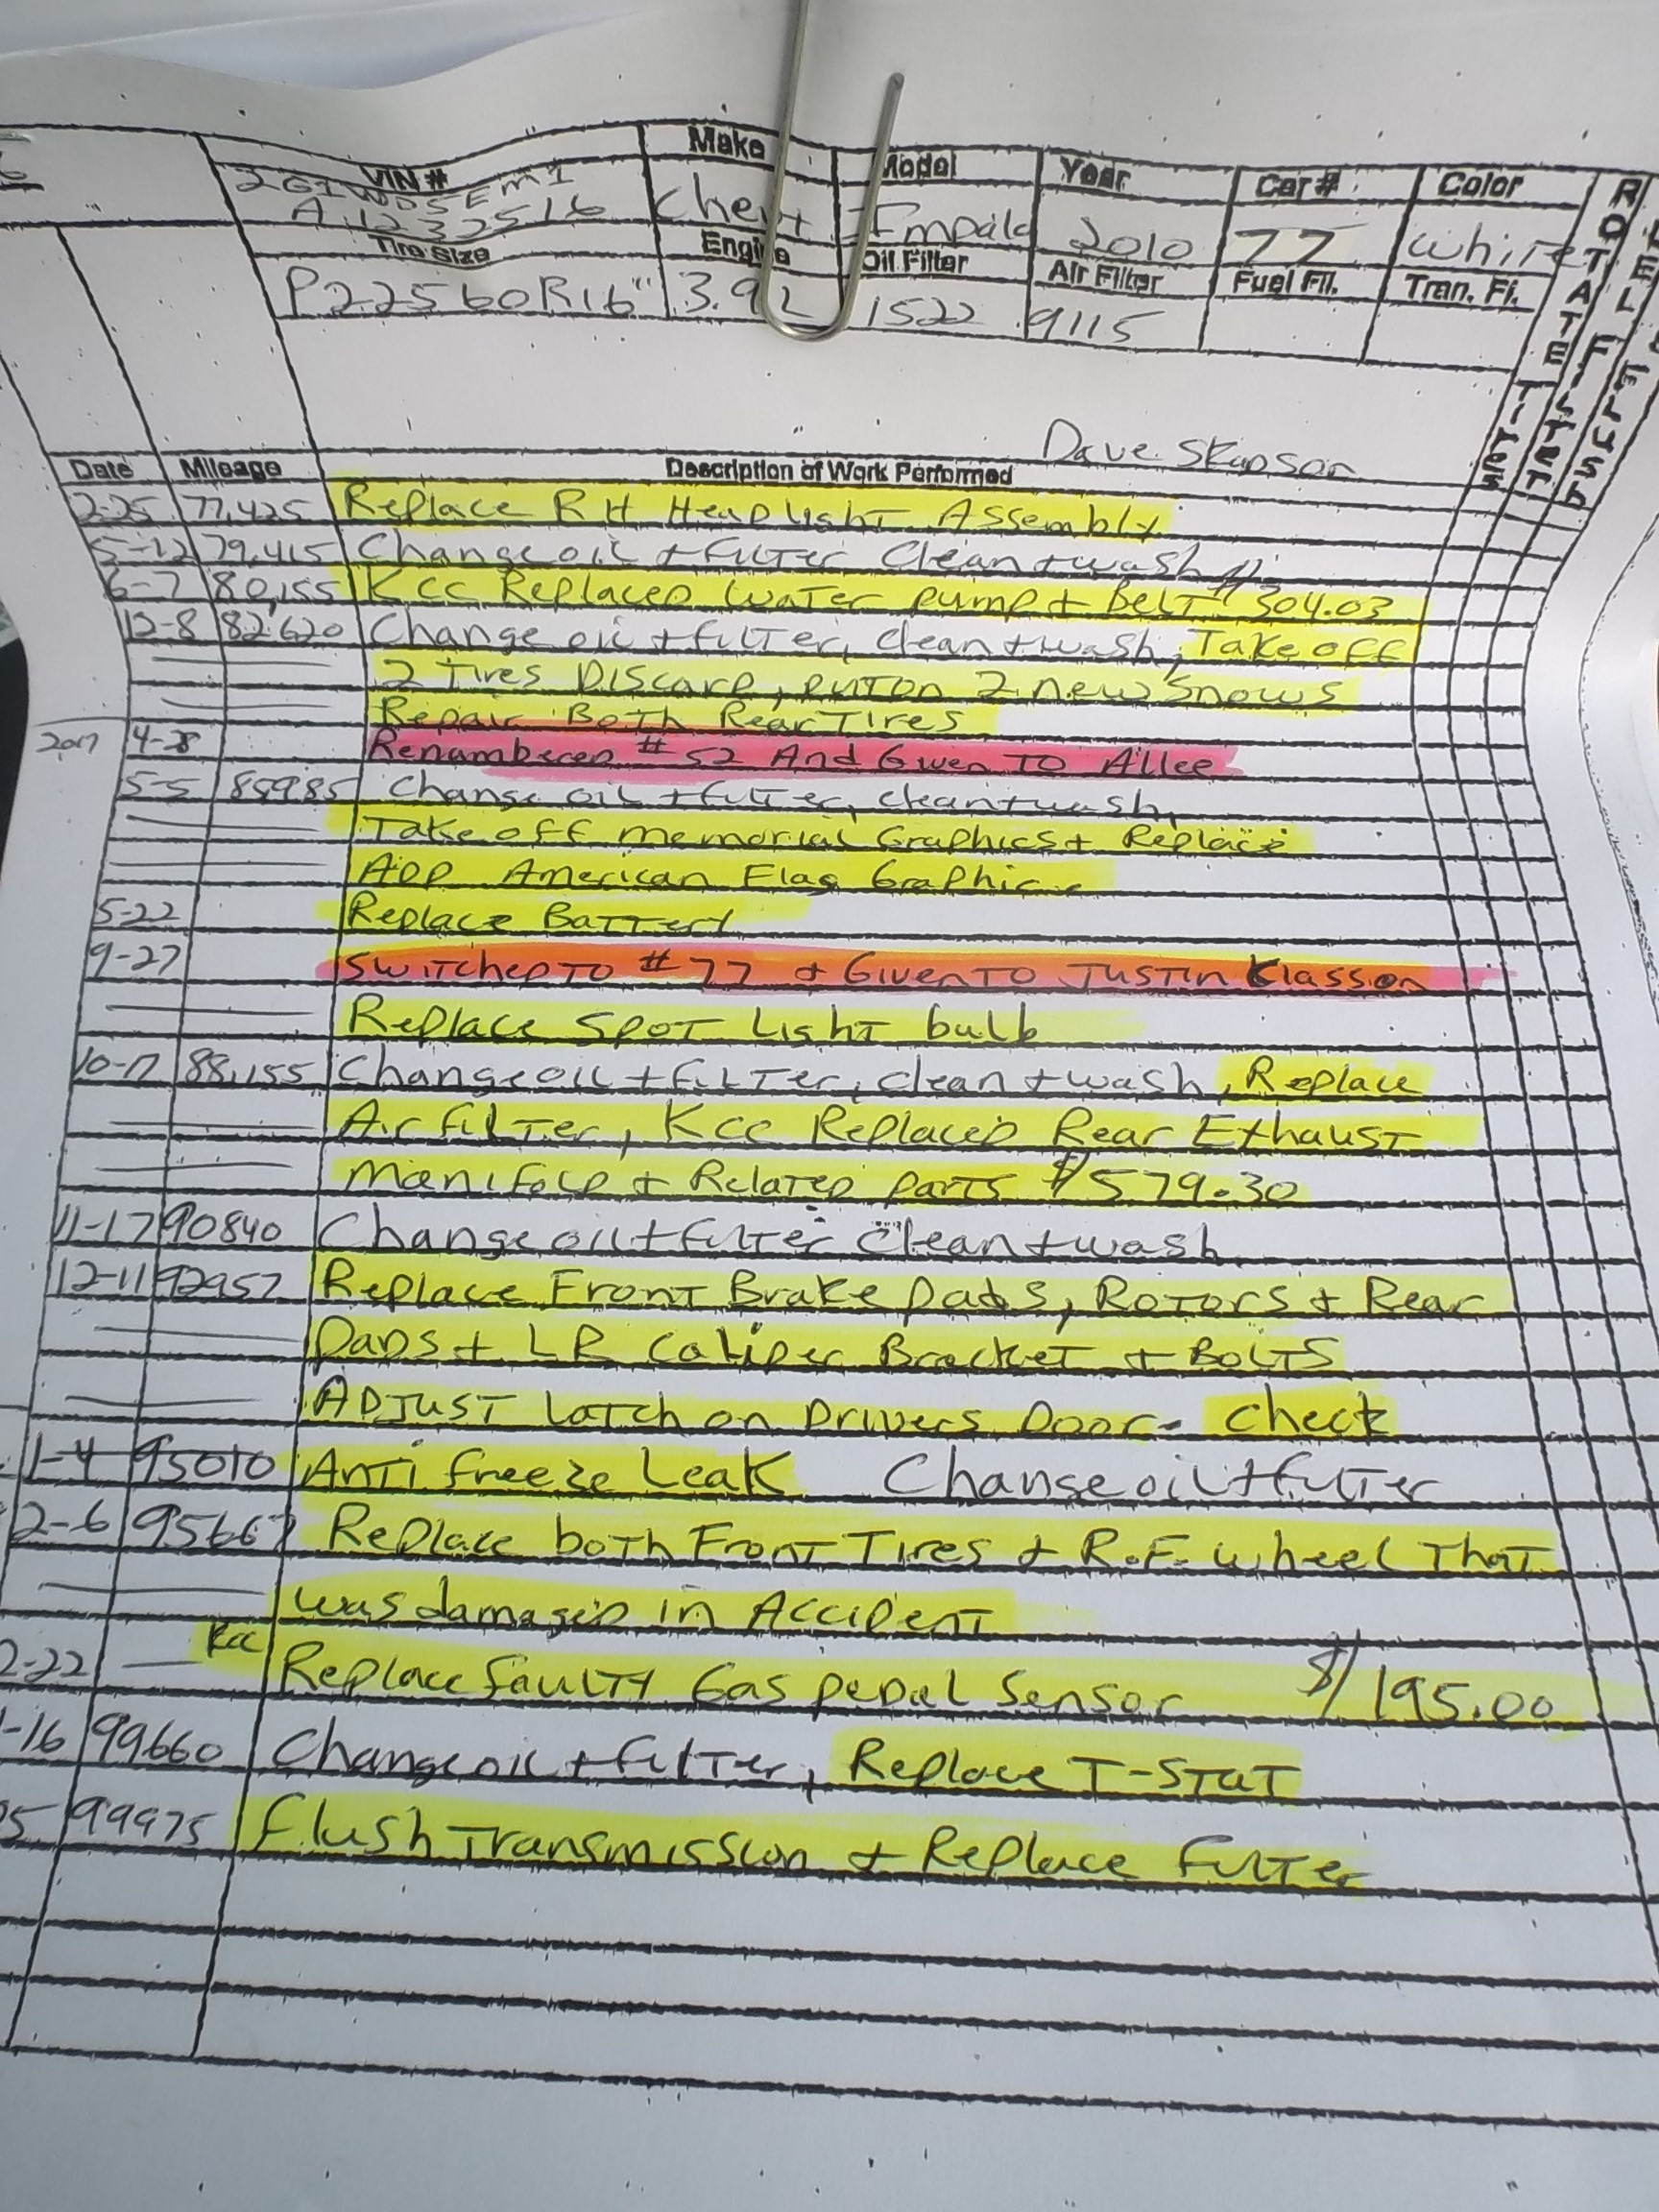 VIN # Make Model Year Car # Color
2G1WD5EM1
A1232516 Chevy Impala 2010 77 White
Tire Size Engine Oil Filter Air Filter Fuel Fil. Tran. Fi.
P22560R16" 3.9L 1522 9115
ROTATE TIRES
FILTER
FLUSH
Dave
Date Mileage Description of Work Performed
2-25 77,425 Replace RH Headlight Assembly
5-12 79,415 Change oil + filter Clean + wash
6-7 80,155 KCC Replaced water pump + Belt $304.03
12-8 82,620 Change oil + filter, clean + wash, Take off
2 Tires Discard, put on 2 new snows
Repair Both Rear Tires
2017 4-28 Renumbered # 52 And Given To Allee
5-5 85985 Change oil + filter, clean + wash,
Take off memorial Graphics + Replace
ADD American Flag Graphic
5-22 Replace Battery
9-27 Switched To # 77 + Given To Justin Klasson
Replace Spot Light bulb
10-17 88,155 Change oil + filter, clean + wash, Replace
Air filter, KCC Replaced Rear Exhaust
manifold + Related parts $579.30
11-17 90840 Change oil + filter Clean + wash
12-11 92957 Replace Front Brake pads, Rotors + Rear
Pads + LR Caliper Bracket + Bolts
Adjust Latch on Drivers Door. Check
1-4 95010 Anti freeze Leak Change oil + filter
2-6 95667 Replace both Front Tires + R.F. wheel That
was damaged in Accident
2-22 KCC Replace faulty Gas pedal Sensor $195.00
-16 99660 Change oil + filter, Replace T-Stat
5 99975 Flush Transmission + Replace Filter